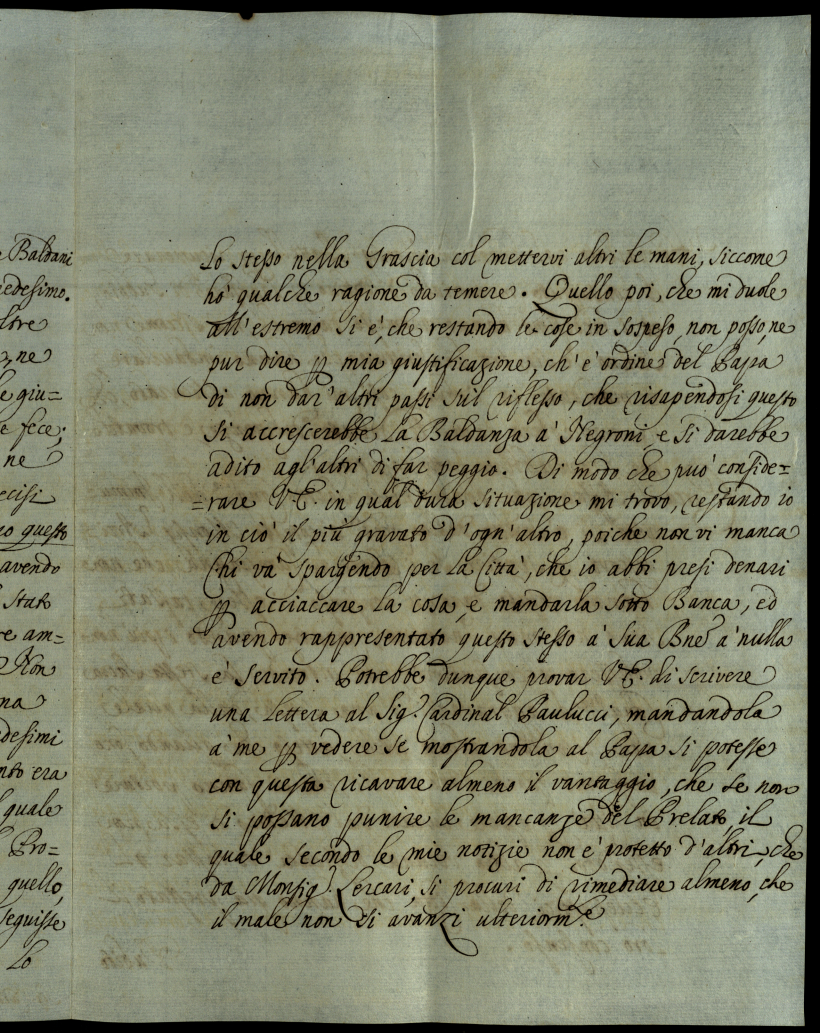 e Baldani
edesimo.
ltre
ne
e giu=
e fece;
ne
ecisi
o questo
avendo
Stato
re am=
Non
na
desimi
nto era
quale
Pro=
quello,
seguisse
Lo
Lo stesso nella Grascia col mettervi altri le mani, siccome
hò qualche ragione da temere. Quello poi, che mi duole
all'estremo si è, che restando le cose in sospeso, non posso, ne
pur dire p mia giustificazione, ch'è ordine del Papa
di non dar'altri passi sul riflesso, che risapendosi questo
si accrescerebbe la Baldanza à Negroni e si darebbe
adito agl'altri di far peggio. Di modo che può conside=
=rare VE. in qual dura situazione mi trovo, restando io
in ciò il più gravato d'ogn'altro, poiche non vi manca
Chi và spargendo per la Città, che io abbi presi denari
p acciaccare la cosa, e mandarla sotto Banca, ed
avendo rappresentato questo stesso à Sua Bne à nulla
è servito. Potrebbe dunque provar VE. di scrivere
una Lettera al Sig.r Cardinal Paulucci, mandandola
à me p vedere se mostrandola al Papa si potesse
con questa ricavare almeno il vantaggio, che se non
si possano punire le mancanze del Prelato, il
quale secondo le mie notizie non è protetto d'altri, che
da Monsig.r Lercari, si procuri di rimediare almeno, che
il male non si avanzi ulteriorm.te